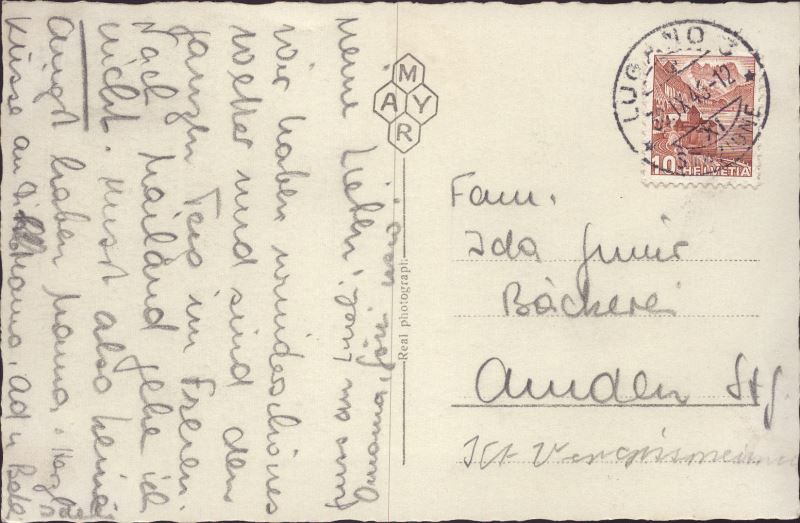 Meine Lieben!
Wir haben wunderschönes
Wetter und sind den
ganzen Tag im Freien.
Nach Mailand gehe ich
nicht. Müsst also keine
Angst haben Mama.
Küsse an Mama, Ad u Bebe
Gruss an Ineli,
Omama,
MAYR
Real photograph.
LUGANO 3
IX.45-12
10 HELVETIA
Fam.
Ida Gmür
Bäckerei
Amden St.G.